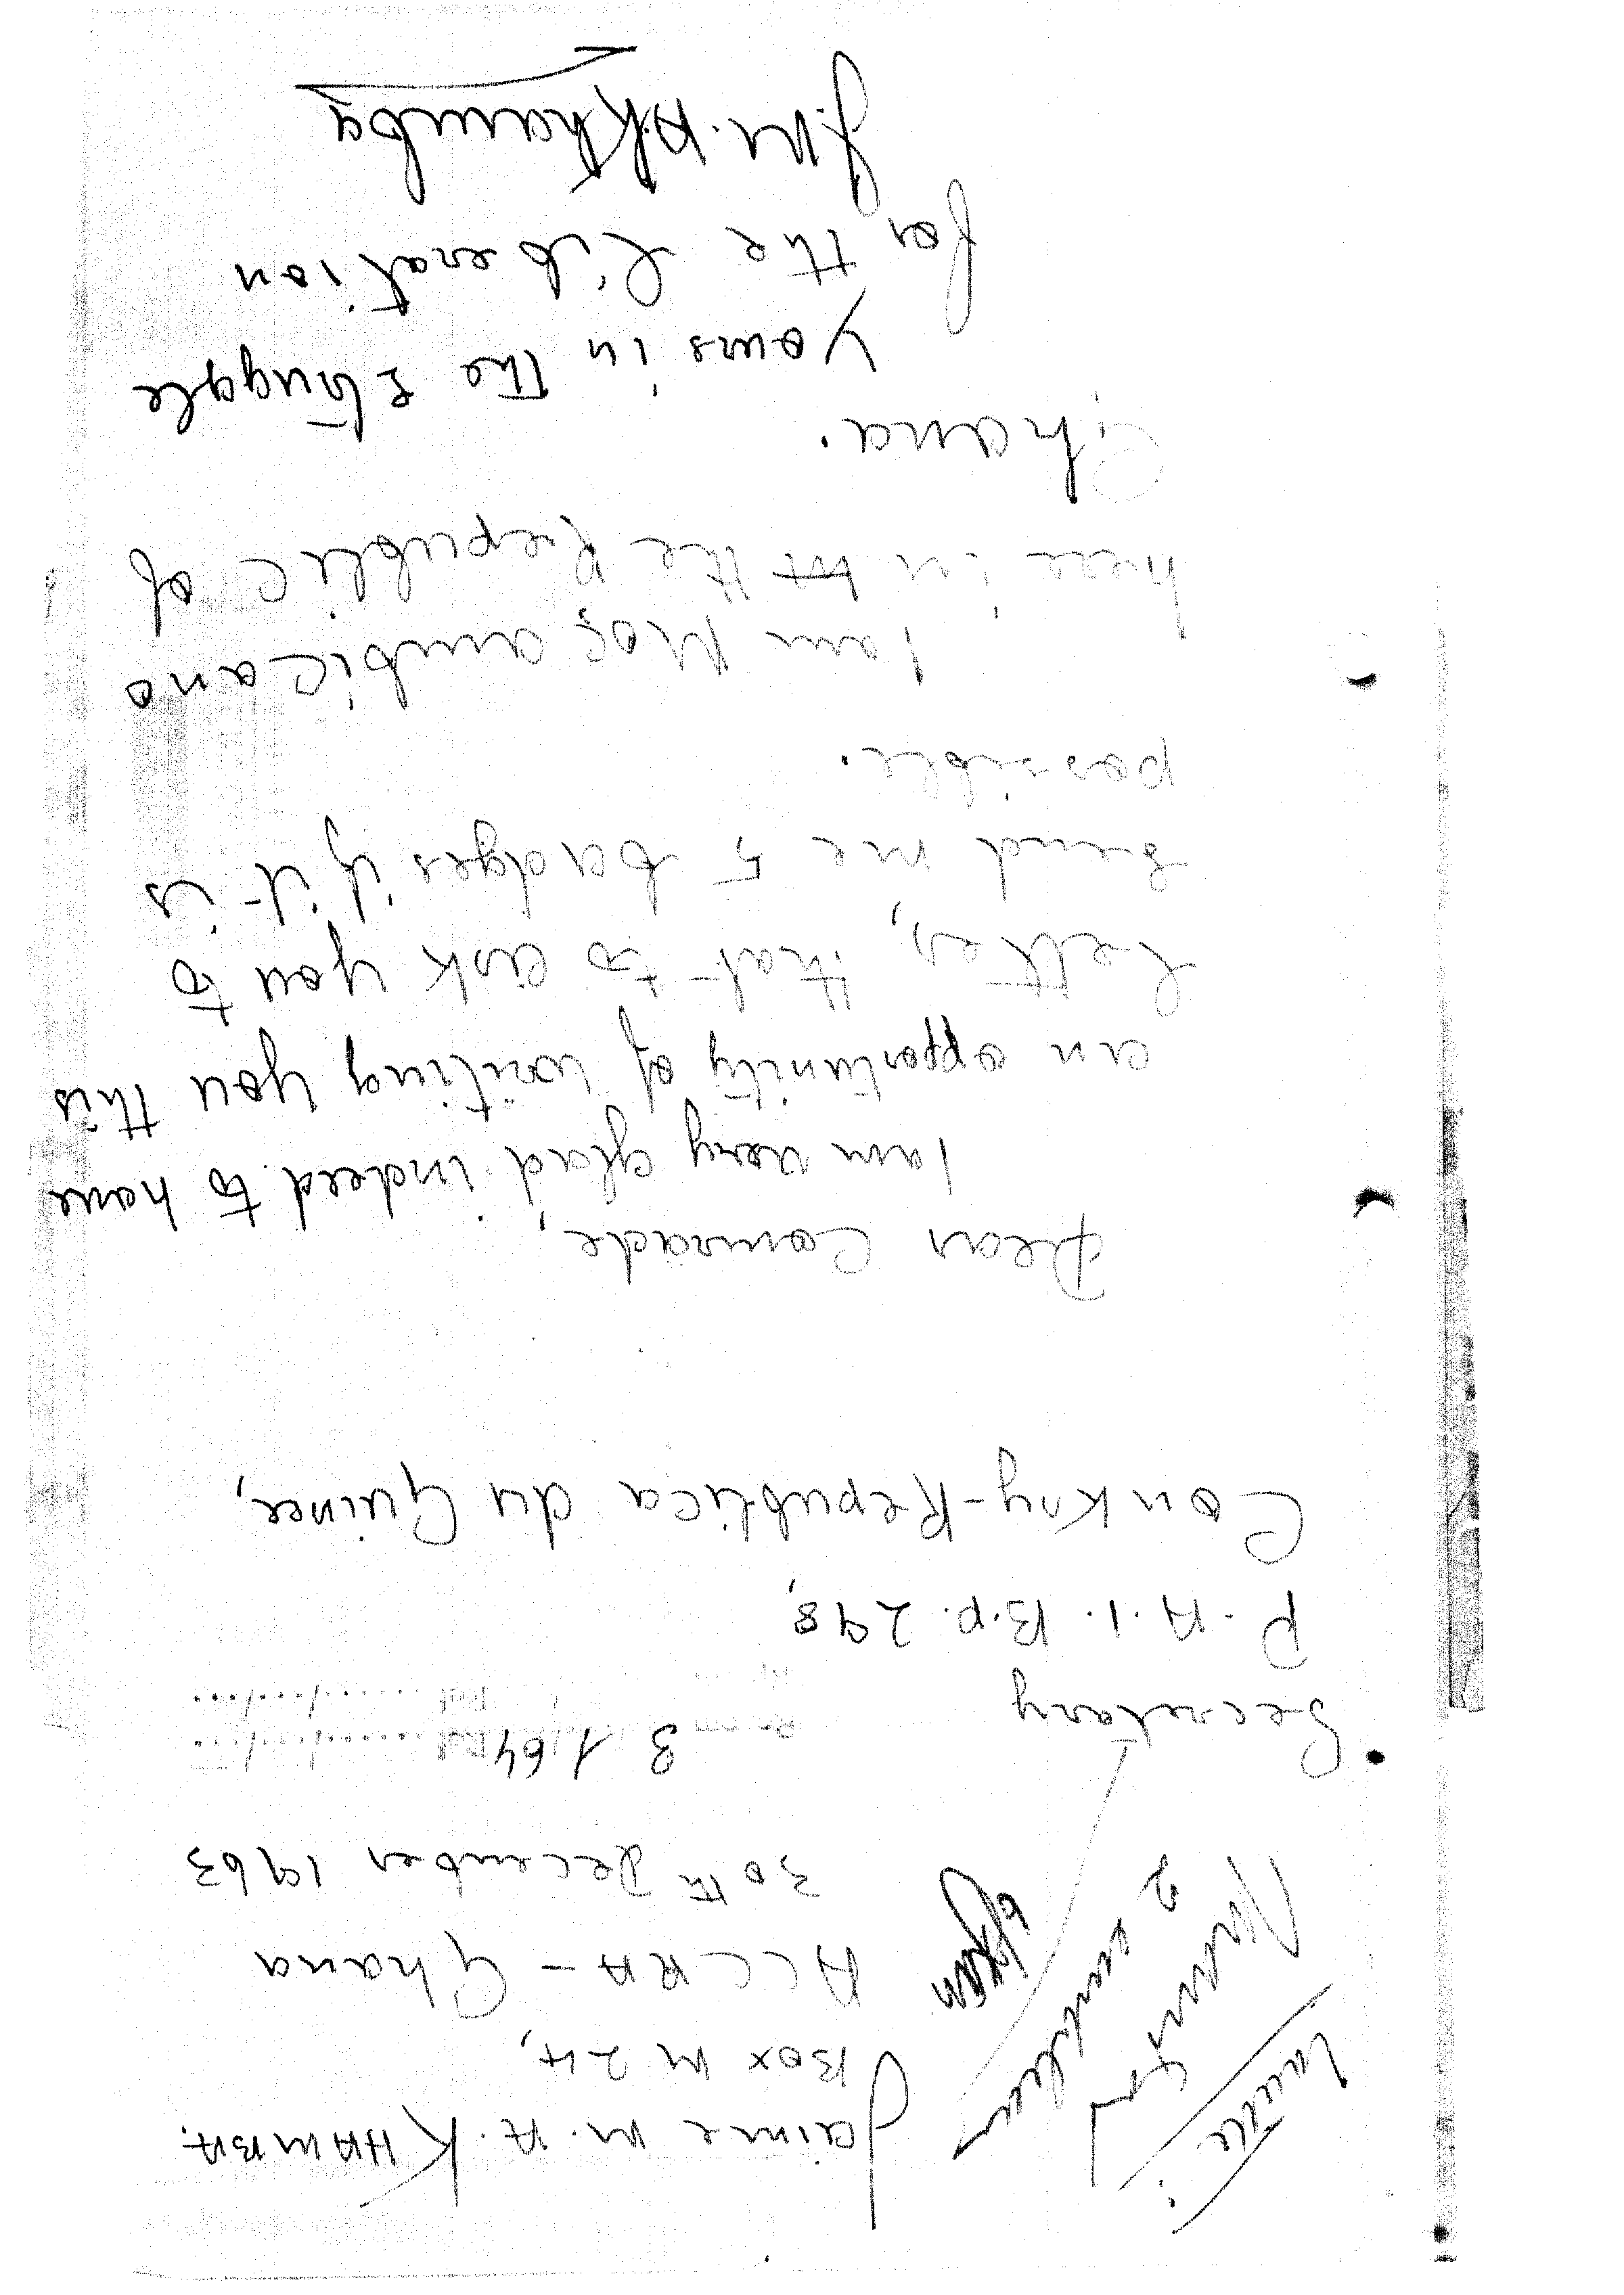 Jaime M. A. KHAMBA.
Box M 24,
ACCRA - Ghana
30th December 1963
3 1 64
Secretary
P. A. I. B.p. 298,
Conkry-Republica du Guinee,
Dear Comrade,
I am very glad indeed to have
an opportunity of writing you this
Letter, that to ask you to
send me 5 badges if it is
possible.
I am Moçambicano
here in the Republic of
Ghana.
Yours in the struggle
for the Liberation
J.M.A.Khamba